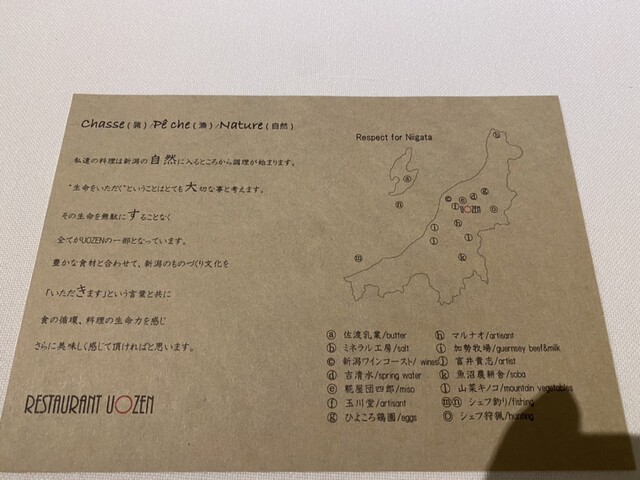 Chasse(猟)/Pêche(漁)/Nature(自然)
私達の料理は新潟の自然に入るところから調理が始まります。
"生命をいただく"ということはとても大切な事と考えます。
その生命を無駄にすることなく
全てがUOZENの一部となっています。
豊かな食材と合わせて、新潟のものづくり文化を
「いただきます」という言葉と共に
食の循環、料理の生命力を感じ
さらに美味しく感じて頂ければと思います。
RESTAURANT UOZEN
Respect for Niigata
UOZEN
ⓐ 佐渡乳業/butter
ⓑ ミネラル工房/salt
ⓒ 新潟ワインコースト/ wines
ⓓ 吉清水/spring water
ⓔ 糀屋団四郎/miso
ⓕ 玉川堂/artisant
ⓖ ひよころ鶏園/eggs
ⓗ マルナオ/artisant
ⓘ 加勢牧場/guernsey beef&milk
ⓙ 富井貴志/artist
ⓚ 魚沼農耕舎/soba
ⓛ 山菜キノコ/mountain vegetables
ⓜⓝ シェフ釣り/fishing
ⓞ シェフ狩猟/hunting